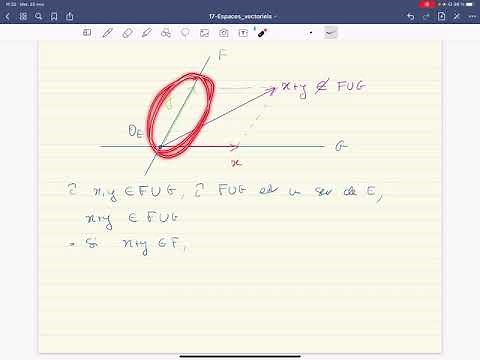 17-Espaces_vectoriels
F
y
x+y ∉ F∪G
0_E
x
G
x,y ∈ F∪G, F∪G est un sev de E,
x+y ∈ F∪G
• Si x+y ∈ F,